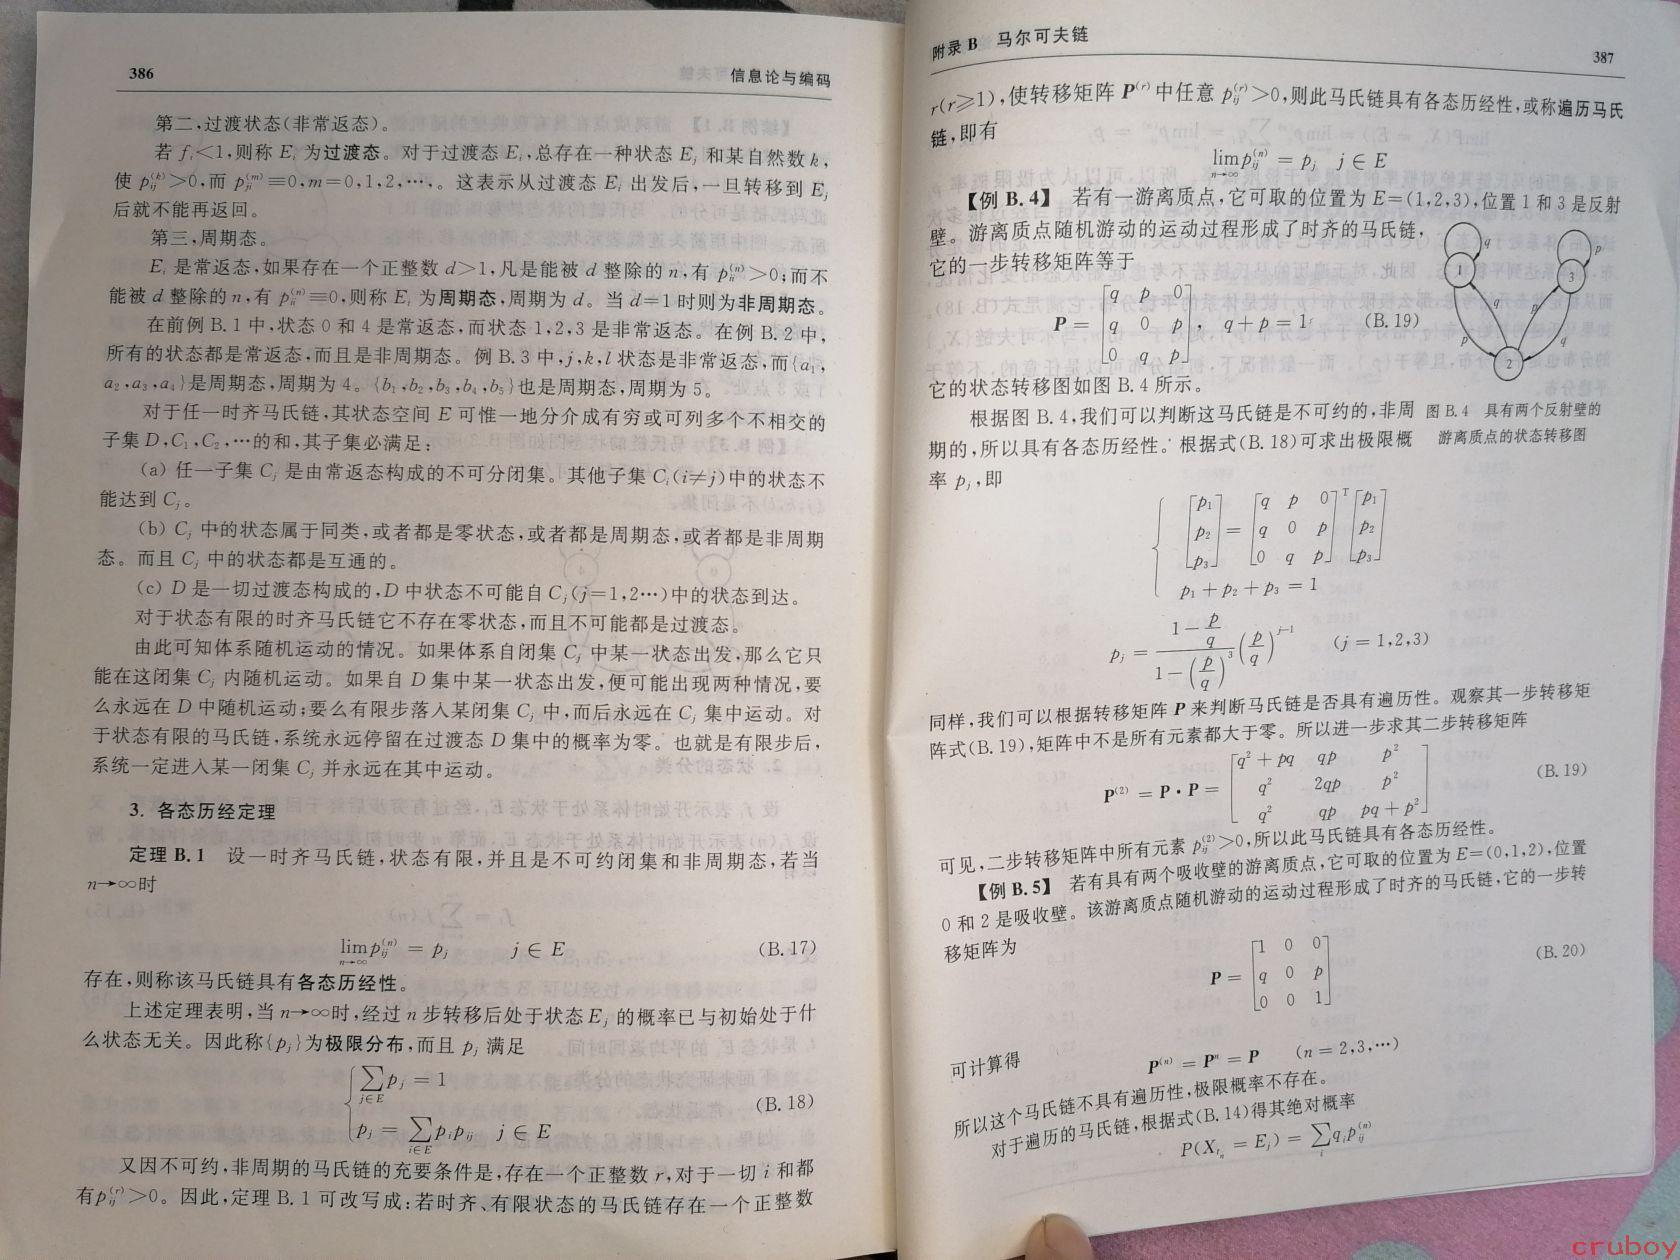 386
信息论与编码
第二,过渡状态(非常返态)。
若 fᵢ<1,则称 Eᵢ 为过渡态。对于过渡态 Eᵢ,总存在一种状态 Eⱼ 和某自然数 k,
使 pᵢⱼ⁽ᵏ⁾>0,而 pⱼᵢ⁽ᵐ⁾≡0,m=0,1,2,…,。这表示从过渡态 Eᵢ 出发后,一旦转移到 Eⱼ
后就不能再返回。
第三,周期态。
Eᵢ 是常返态,如果存在一个正整数 d>1,凡是能被 d 整除的 n,有 pᵢᵢ⁽ⁿ⁾>0;而不
能被 d 整除的 n,有 pᵢᵢ⁽ⁿ⁾≡0,则称 Eᵢ 为周期态,周期为 d。当 d=1 时则为非周期态。
在前例 B.1 中,状态 0 和 4 是常返态,而状态 1,2,3 是非常返态。在例 B.2 中,
所有的状态都是常返态,而且是非周期态。例 B.3 中,j,k,l 状态是非常返态,而{a₁,
a₂,a₃,a₄}是周期态,周期为 4。{b₁,b₂,b₃,b₄,b₅}也是周期态,周期为 5。
对于任一时齐马氏链,其状态空间 E 可惟一地分介成有穷或可列多个不相交的
子集 D,C₁,C₂,…的和,其子集必满足:
(a) 任一子集 Cⱼ 是由常返态构成的不可分闭集。其他子集 Cᵢ(i≠j)中的状态不
能达到 Cⱼ。
(b) Cⱼ 中的状态属于同类,或者都是零状态,或者都是周期态,或者都是非周期
态。而且 Cⱼ 中的状态都是互通的。
(c) D 是一切过渡态构成的,D 中状态不可能自 Cⱼ(j=1,2…)中的状态到达。
对于状态有限的时齐马氏链它不存在零状态,而且不可能都是过渡态。
由此可知体系随机运动的情况。如果体系自闭集 Cⱼ 中某一状态出发,那么它只
能在这闭集 Cⱼ 内随机运动。如果自 D 集中某一状态出发,便可能出现两种情况,要
么永远在 D 中随机运动;要么有限步落入某闭集 Cⱼ 中,而后永远在 Cⱼ 集中运动。对
于状态有限的马氏链,系统永远停留在过渡态 D 集中的概率为零。也就是有限步后,
系统一定进入某一闭集 Cⱼ 并永远在其中运动。
3. 各态历经定理
定理 B.1 设一时齐马氏链,状态有限,并且是不可约闭集和非周期态,若当
n→∞时
lim pᵢⱼ⁽ⁿ⁾ = pⱼ j∈E (B.17)
n→∞
存在,则称该马氏链具有各态历经性。
上述定理表明,当 n→∞时,经过 n 步转移后处于状态 Eⱼ 的概率已与初始处于什
么状态无关。因此称{pⱼ}为极限分布,而且 pⱼ 满足
∑pⱼ = 1
j∈E
(B.18)
pⱼ = ∑pᵢpᵢⱼ j∈E
i∈E
又因不可约,非周期的马氏链的充要条件是,存在一个正整数 r,对于一切 i 和都
有pᵢⱼ⁽ʳ⁾>0。因此,定理 B.1 可改写成:若时齐、有限状态的马氏链存在一个正整数
附录 B 马尔可夫链
387
r(r≥1),使转移矩阵 P⁽ʳ⁾中任意 pᵢⱼ⁽ʳ⁾>0,则此马氏链具有各态历经性,或称遍历马氏
链,即有
lim pᵢⱼ⁽ⁿ⁾ = pⱼ j∈E
n→∞
【例 B.4】 若有一游离质点,它可取的位置为 E=(1,2,3),位置 1 和 3 是反射
壁。游离质点随机游动的运动过程形成了时齐的马氏链,
它的一步转移矩阵等于
P = [q p 0
q 0 p
0 q p], q+p=1 (B.19)
q p
1 3
q p
p q
2
它的状态转移图如图 B.4 所示。
根据图 B.4,我们可以判断这马氏链是不可约的,非周
期的,所以具有各态历经性。根据式(B.18)可求出极限概
率 pⱼ,即
图 B.4 具有两个反射壁的
游离质点的状态转移图
[p₁ p₂ p₃] = [q p 0
q 0 p
0 q p]ᵀ [p₁ p₂ p₃]
p₁+p₂+p₃=1
pⱼ = (1−p/q)/(1−(p/q)³) (p/q)ʲ⁻¹ (j=1,2,3)
同样,我们可以根据转移矩阵 P 来判断马氏链是否具有遍历性。观察其一步转移矩
阵式(B.19),矩阵中不是所有元素都大于零。所以进一步求其二步转移矩阵
P⁽²⁾ = P·P = [q²+pq qp p²
q² 2qp p²
q² qp pq+p²] (B.19)
可见,二步转移矩阵中所有元素 pᵢⱼ⁽²⁾>0,所以此马氏链具有各态历经性。
【例 B.5】 若有具有两个吸收壁的游离质点,它可取的位置为 E=(0,1,2),位置
0 和 2 是吸收壁。该游离质点随机游动的运动过程形成了时齐的马氏链,它的一步转
移矩阵为
P = [1 0 0
q 0 p
0 0 1] (B.20)
可计算得
P⁽ⁿ⁾ = Pⁿ = P (n=2,3,…)
所以这个马氏链不具有遍历性,极限概率不存在。
对于遍历的马氏链,根据式(B.14)得其绝对概率
P(X_{tₙ} = Eⱼ) = ∑qᵢpᵢⱼ⁽ⁿ⁾
i
cruboy